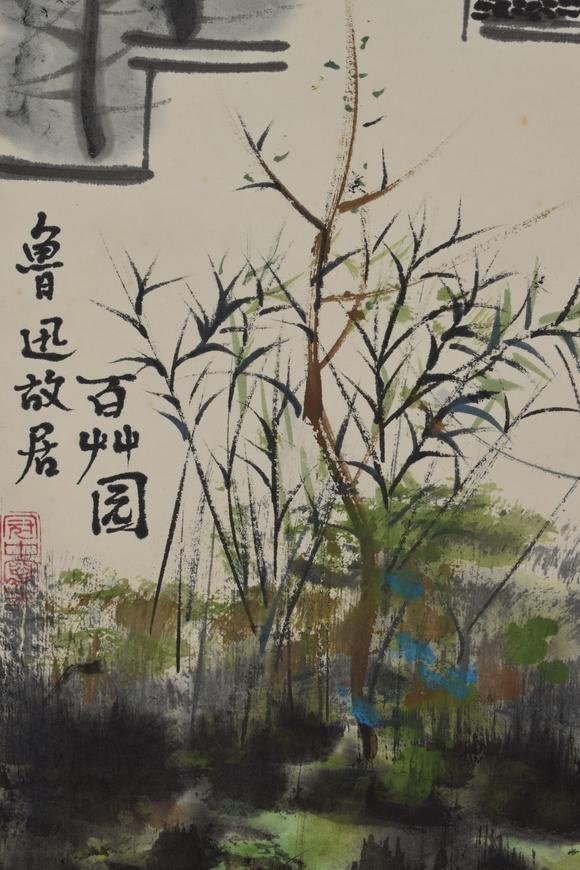 魯迅故居
百艸园